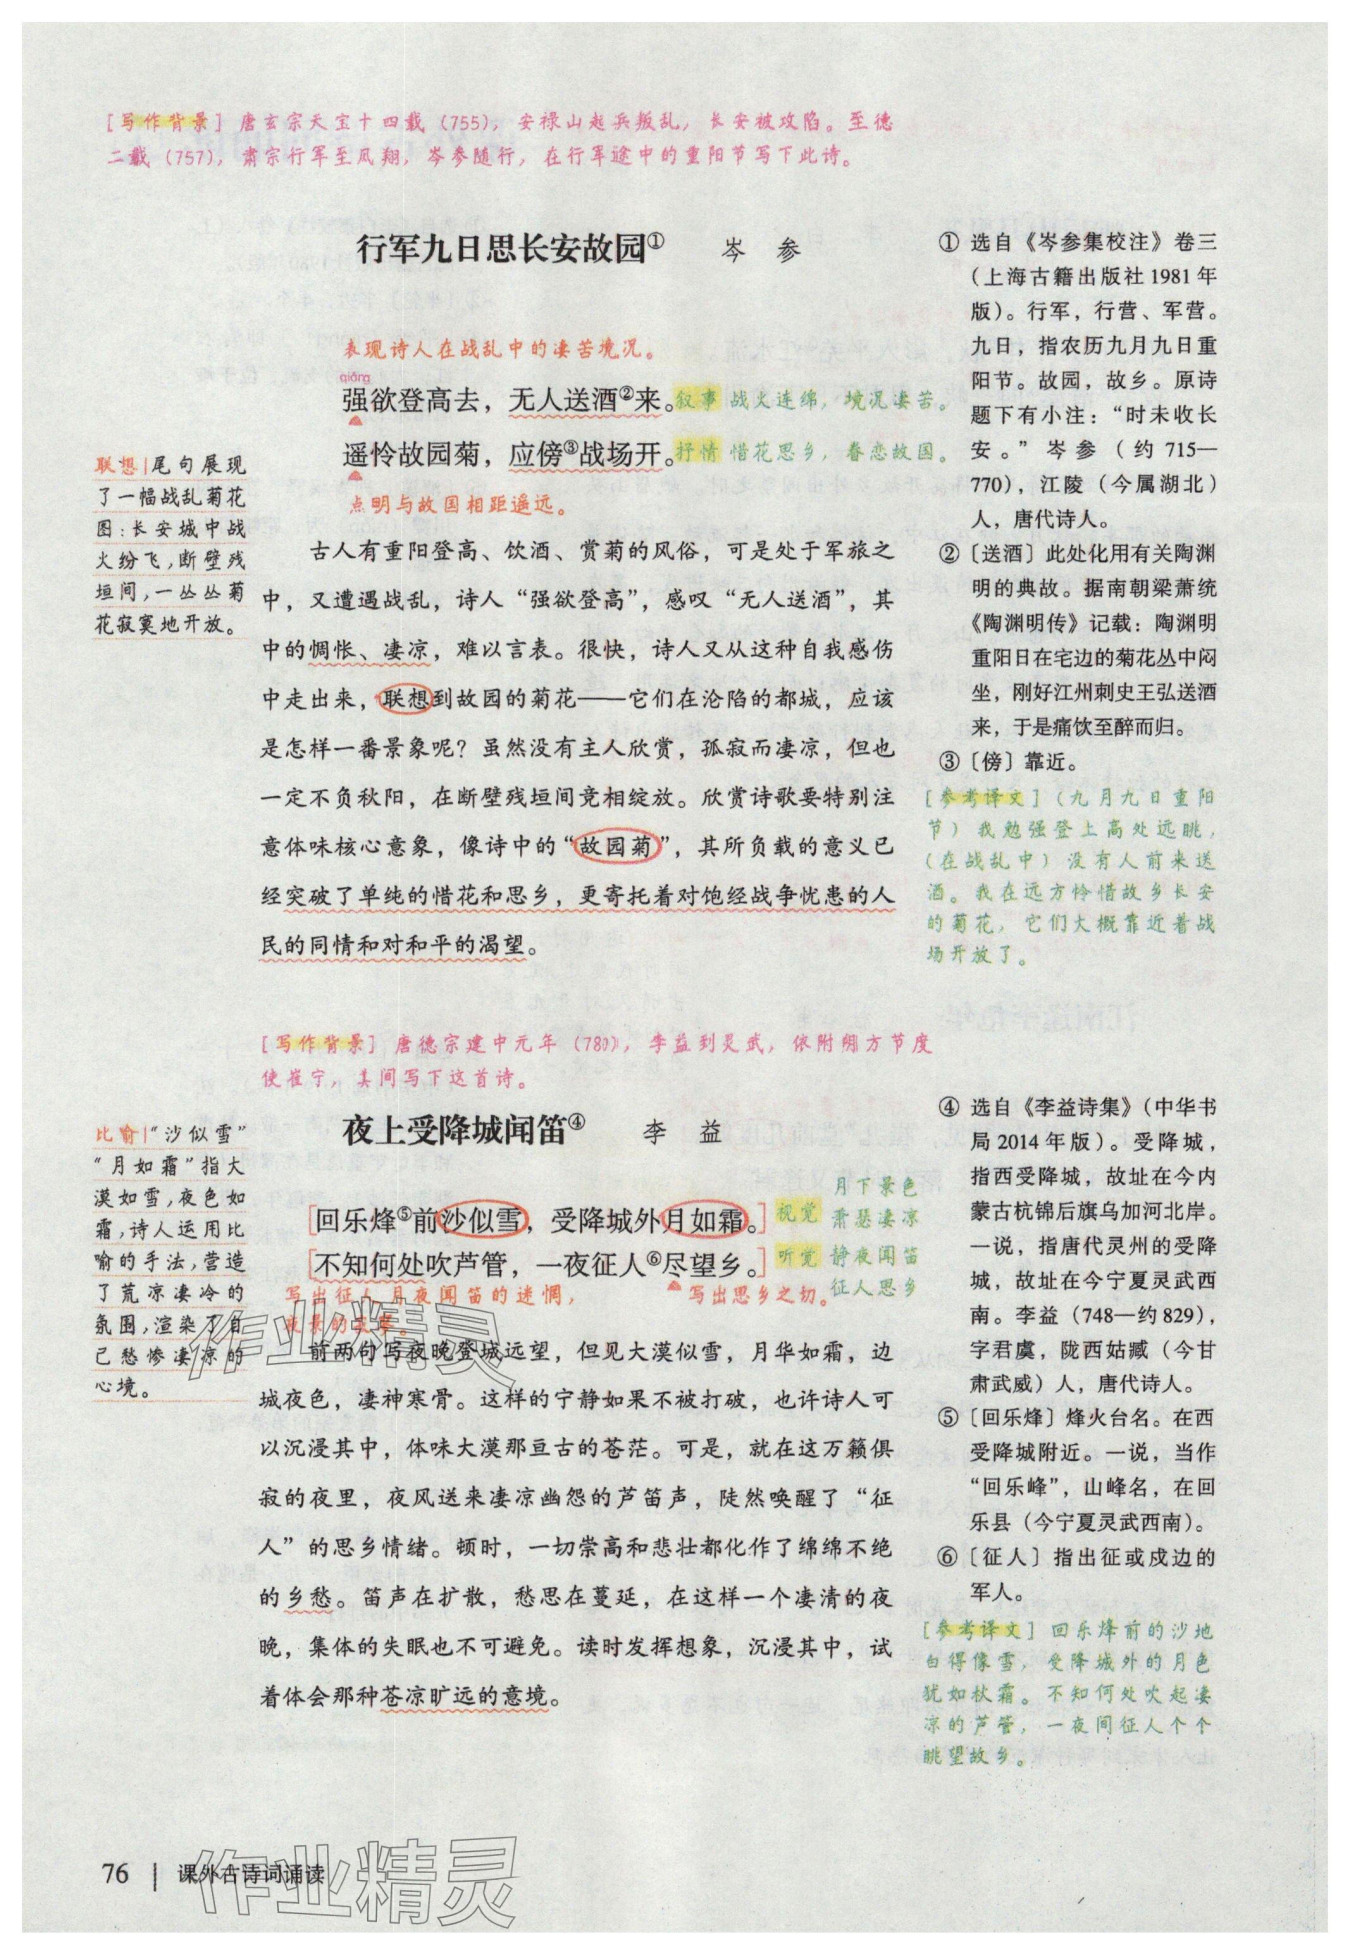 [写作背景] 唐玄宗天宝十四载（755），安禄山起兵叛乱，长安被攻陷。至德
二载（757），肃宗行军至凤翔，岑参随行，在行军途中的重阳节写下此诗。
行军九日思长安故园① 岑 参
表现诗人在战乱中的凄苦境况。
qiǎng
强欲登高去，无人送酒②来。
叙事 战火连绵，境况凄苦。
遥怜故园菊，应傍③战场开。
抒情 惜花思乡，眷恋故国。
点明与故国相距遥远。
联想|尾句展现
了一幅战乱菊花
图：长安城中战
火纷飞，断壁残
垣间，一丛丛菊
花寂寞地开放。
古人有重阳登高、饮酒、赏菊的风俗，可是处于军旅之
中，又遭遇战乱，诗人“强欲登高”，感叹“无人送酒”，其
中的惆怅、凄凉，难以言表。很快，诗人又从这种自我感伤
中走出来，联想到故园的菊花——它们在沦陷的都城，应该
是怎样一番景象呢？虽然没有主人欣赏，孤寂而凄凉，但也
一定不负秋阳，在断壁残垣间竞相绽放。欣赏诗歌要特别注
意体味核心意象，像诗中的“故园菊”，其所负载的意义已
经突破了单纯的惜花和思乡，更寄托着对饱经战争忧患的人
民的同情和对和平的渴望。
① 选自《岑参集校注》卷三
（上海古籍出版社1981年
版）。行军，行营、军营。
九日，指农历九月九日重
阳节。故园，故乡。原诗
题下有小注：“时未收长
安。”岑参（约715—
770），江陵（今属湖北）
人，唐代诗人。
②〔送酒〕此处化用有关陶渊
明的典故。据南朝梁萧统
《陶渊明传》记载：陶渊明
重阳日在宅边的菊花丛中闷
坐，刚好江州刺史王弘送酒
来，于是痛饮至醉而归。
③〔傍〕靠近。
[参考译文]（九月九日重阳
节）我勉强登上高处远眺，
（在战乱中）没有人前来送
酒。我在远方怜惜故乡长安
的菊花，它们大概靠近着战
场开放了。
[写作背景] 唐德宗建中元年（780），李益到灵武，依附朔方节度
使崔宁，其间写下这首诗。
夜上受降城闻笛④ 李 益
[回乐烽⑤前沙似雪，受降城外月如霜。]
视觉 月下景色
萧瑟凄凉
[不知何处吹芦管，一夜征人⑥尽望乡。]
听觉 静夜闻笛
征人思乡
写出征人月夜闻笛的迷惘，
写出思乡之切。
比喻|“沙似雪”
“月如霜”指大
漠如雪，夜色如
霜，诗人运用比
喻的手法，营造
了荒凉凄冷的
氛围，渲染了自
己愁惨凄凉的
心境。
前两句写夜晚登城远望，但见大漠似雪，月华如霜，边
城夜色，凄神寒骨。这样的宁静如果不被打破，也许诗人可
以沉浸其中，体味大漠那亘古的苍茫。可是，就在这万籁俱
寂的夜里，夜风送来凄凉幽怨的芦笛声，陡然唤醒了“征
人”的思乡情绪。顿时，一切崇高和悲壮都化作了绵绵不绝
的乡愁。笛声在扩散，愁思在蔓延，在这样一个凄清的夜
晚，集体的失眠也不可避免。读时发挥想象，沉浸其中，试
着体会那种苍凉旷远的意境。
④ 选自《李益诗集》（中华书
局2014年版）。受降城，
指西受降城，故址在今内
蒙古杭锦后旗乌加河北岸。
一说，指唐代灵州的受降
城，故址在今宁夏灵武西
南。李益（748—约829），
字君虞，陇西姑臧（今甘
肃武威）人，唐代诗人。
⑤〔回乐烽〕烽火台名。在西
受降城附近。一说，当作
“回乐峰”，山峰名，在回
乐县（今宁夏灵武西南）。
⑥〔征人〕指出征或戍边的
军人。
[参考译文] 回乐烽前的沙地
白得像雪，受降城外的月色
犹如秋霜。不知何处吹起凄
凉的芦管，一夜间征人个个
眺望故乡。
作业精灵
76 | 课外古诗词诵读
作业精灵